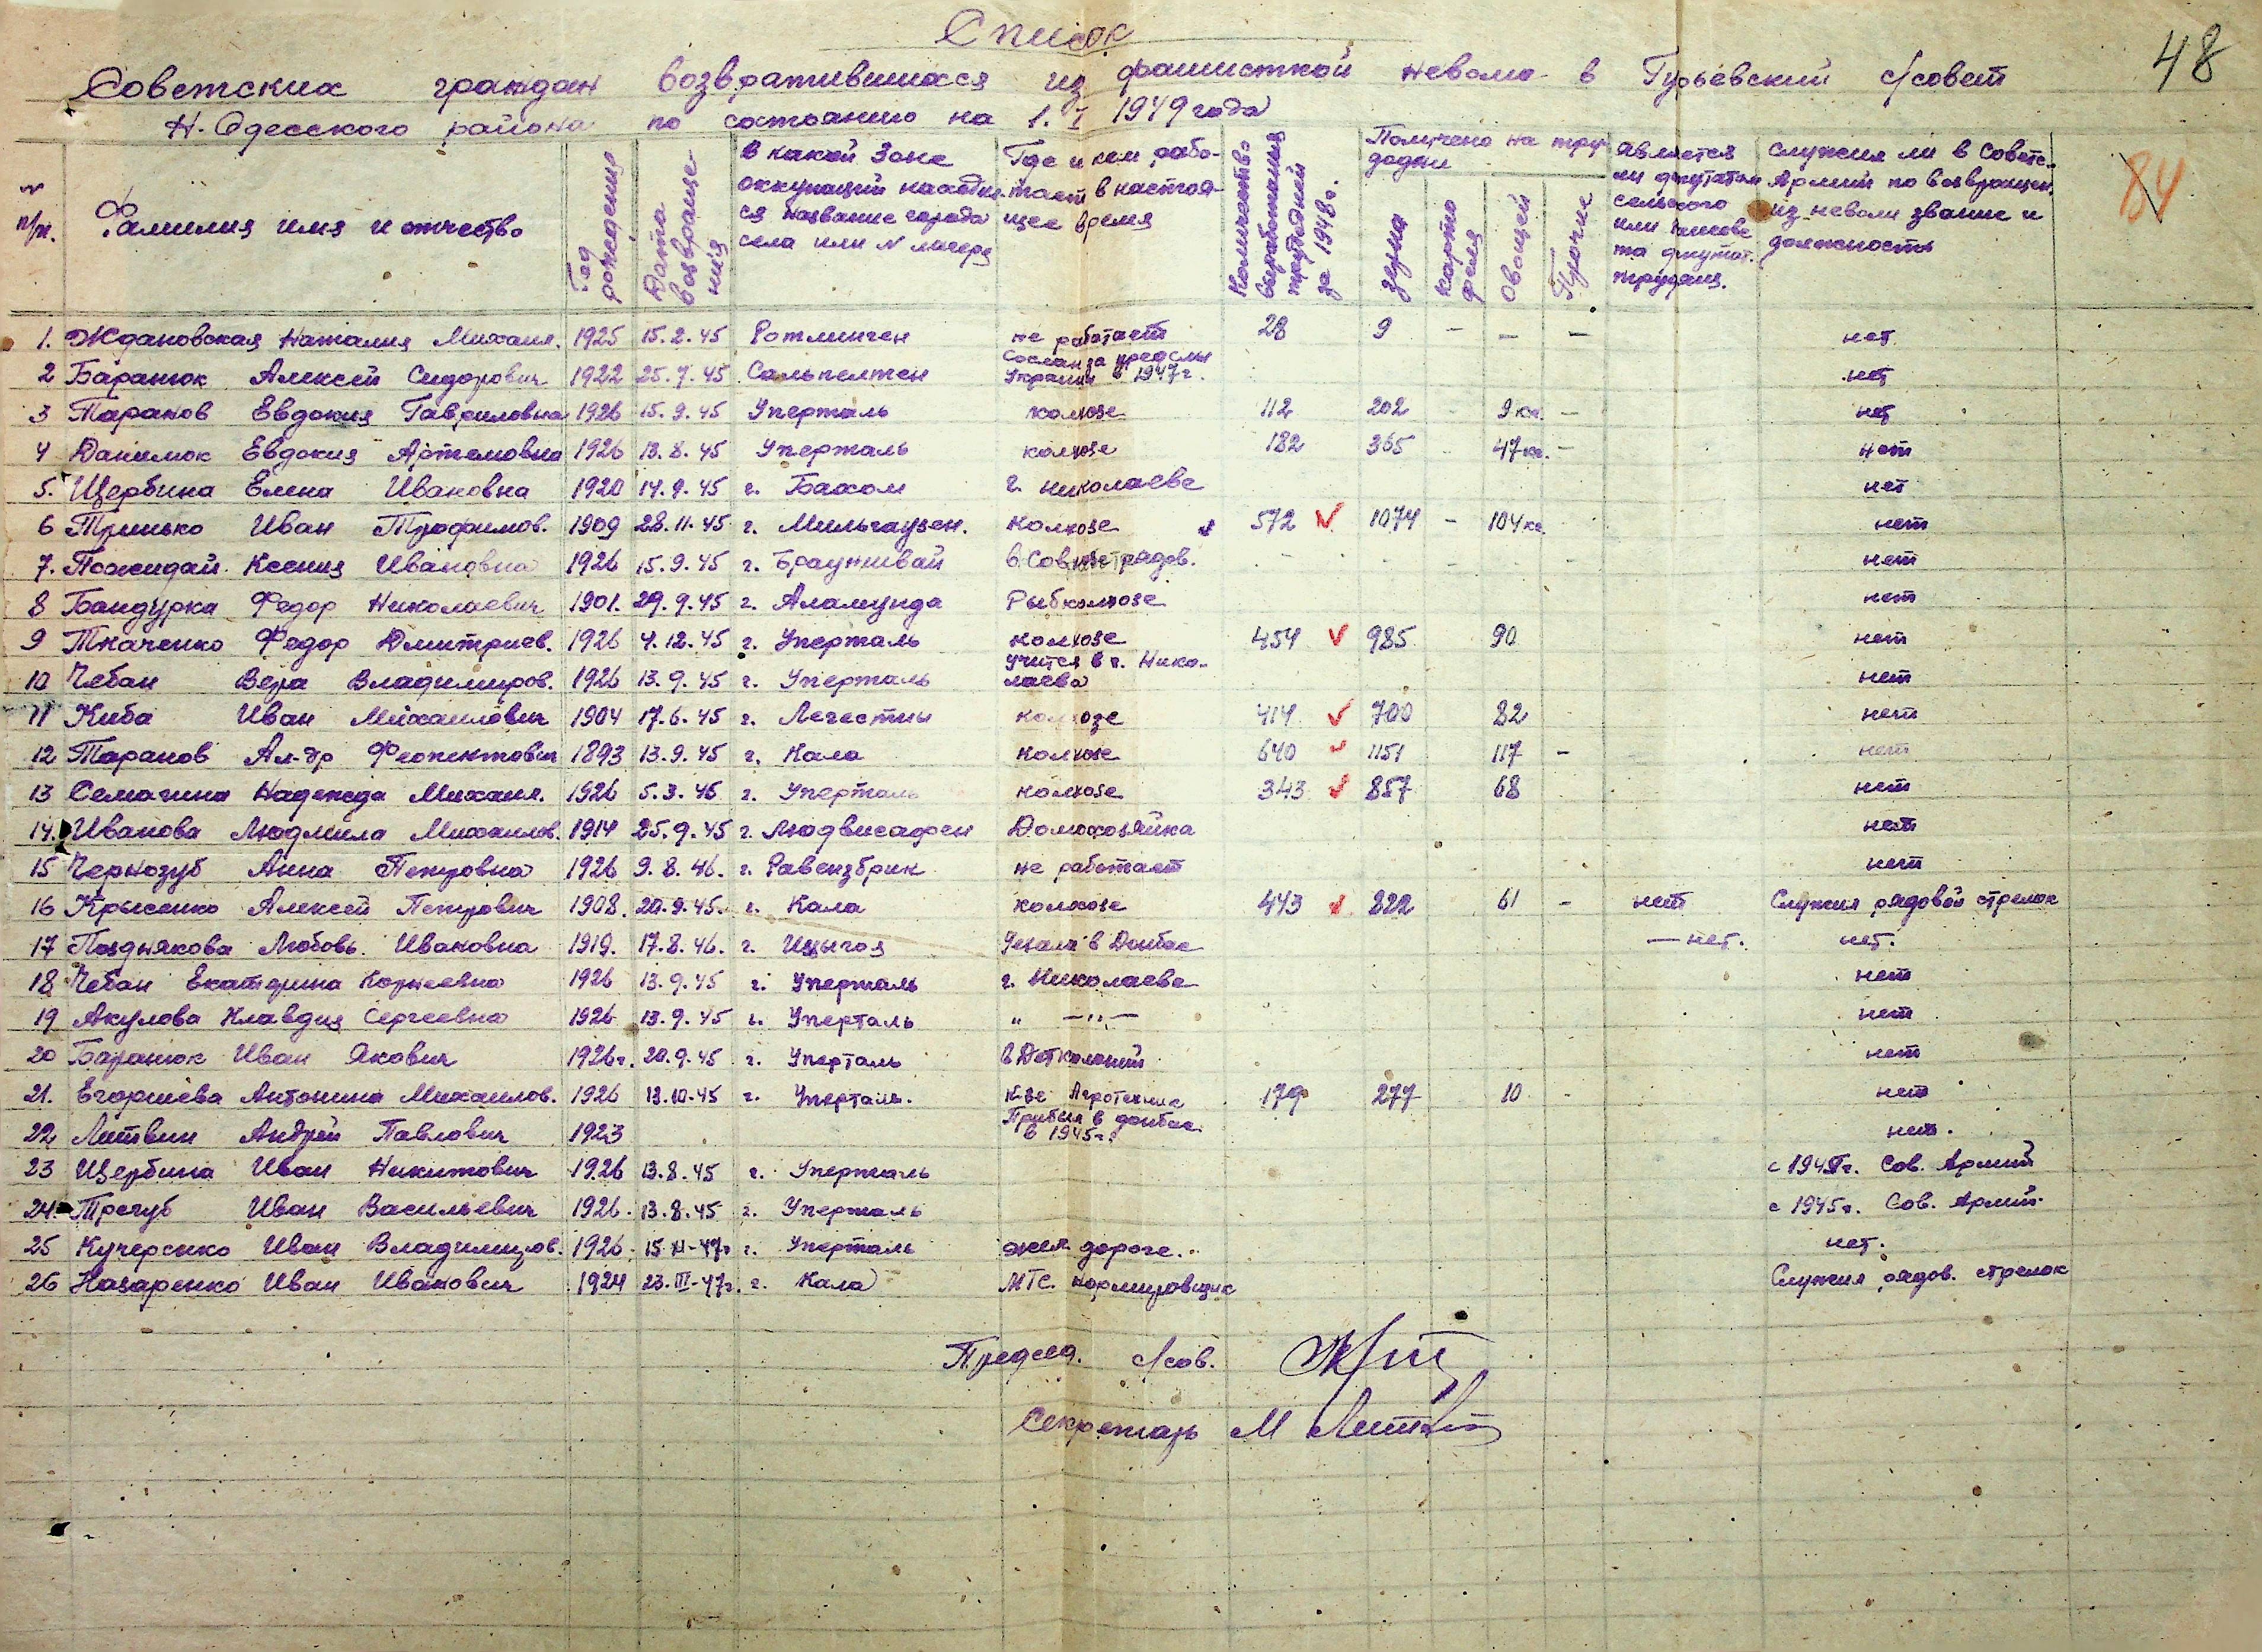 Список
48
Советских граждан возвратившихся из фашисткой неволи в Гурьевский с/совет
Н. Одесского района по состоянию на 1.I 1949 года
84
№ п/п.
Фамилия имя и отчество
Год рождения
Дата возвращения
В какой зоне оккупации находился название города села или N лагеря
Где и кем работает в настоящее время
Количество выработанных трудодней за 1948 г.
Получено на трудодни
зерна
картофеля
Овощей
Прочие
Является ли депутатом сельского или
Служил ли в Советс. Армии по возвращен. из неволи звание и должность
1. Ждановская Наталия Михаил. 1925 15.2.45 Ротлинген не работает 28 9 - - - нет
2 Баранюк Алексей Сидорович 1922 25.7.45 Сальпелтен Сослан за пределы Украины в 1947 г. нет
3 Таранов Евдокия Гавриловна 1926 15.9.45 Уперталь колхозе 112 202 - 9 кг. - нет
4 Данилюк Евдокия Артемовна 1926 13.8.45 Уперталь колхозе 182 365 47 кг. - нет
5. Щербина Елена Ивановна 1920 14.9.45 г. Бахом г. Николаеве нет
6 Гринько Иван Трофимов. 1909 28.11.45 г. Мильгаузен. колхозе 572 ✓ 1074 - 104 кг нет
7. Пожидай Ксения Ивановна 1926 15.9.45 г. Брауншвай в Совхозе рядов. нет
8 Бандурка Федор Николаевич 1901. 29.9.45 г. Аламунда Рыбколхозе нет
9 Ткаченко Федор Дмитриев. 1926 4.12.45 г. Уперталь колхозе 454 ✓ 985 90 нет
10 Чебан Вера Владимиров. 1926 13.9.45 г. Уперталь учится в г. Николаева нет
11 Киба Иван Михаилович 1904 17.6.45 г. Легестны колхозе 414 ✓ 700 82 нет
12 Таранов Ал-др Феопентович 1893 13.9.45 г. Кала колхозе 640 ✓ 1151 117 - нет
13 Семагина Надежда Михаил. 1926 5.3.46 г. Уперталь колхозе 343 ✓ 857 68 нет
14. Иванова Людмила Михаилов. 1914 25.9.45 г. Людвисафен Домохозяйка нет
15 Чернозуб Анна Петровна 1926 9.8.46. г. Равензбрик не работает нет
16 Крысенко Алексей Петрович 1908. 20.9.45. г. Кала колхозе 443 ✓ 822 61 - нет Служил рядовой стрелок
17 Позднякова Любовь Ивановна 1919. 17.8.46. г. Ицыгоя Уехала в Донбас — нет. нет.
18 Чебан Екатерина Корнеевна 1926 13.9.45 г. Уперталь г. Николаеве нет
19 Акулова Клавдия Сергеевна 1926 13.9.45 г. Уперталь " —"— нет
20 Баранюк Иван Якович 1926г. 20.9.45 г. Уперталь в Детколонии нет
21. Егоршева Антонина Михаилов. 1926 13.10.45 г. Уперталь. К-зе Агротехник 179 277 10 - нет
22 Литвин Андрей Павлович 1923 Прибыл в донбас в 1945 г. нет.
23 Щербина Иван Никитович 1926 13.8.45 г. Уперталь с 1945г. Сов. Армии
24. Трегуб Иван Васильевич 1926. 13.8.45 г. Уперталь с 1945г. Сов. Армии.
25 Кучеренко Иван Владимиров. 1926. 15 XI-47г г. Уперталь жел дороге. нет.
26 Назаренко Иван Иванович 1924 23.III-47г. г. Кала МТС. нормировщик Служил рядов. стрелок
Председ. с/сов.
Секретарь М Литв